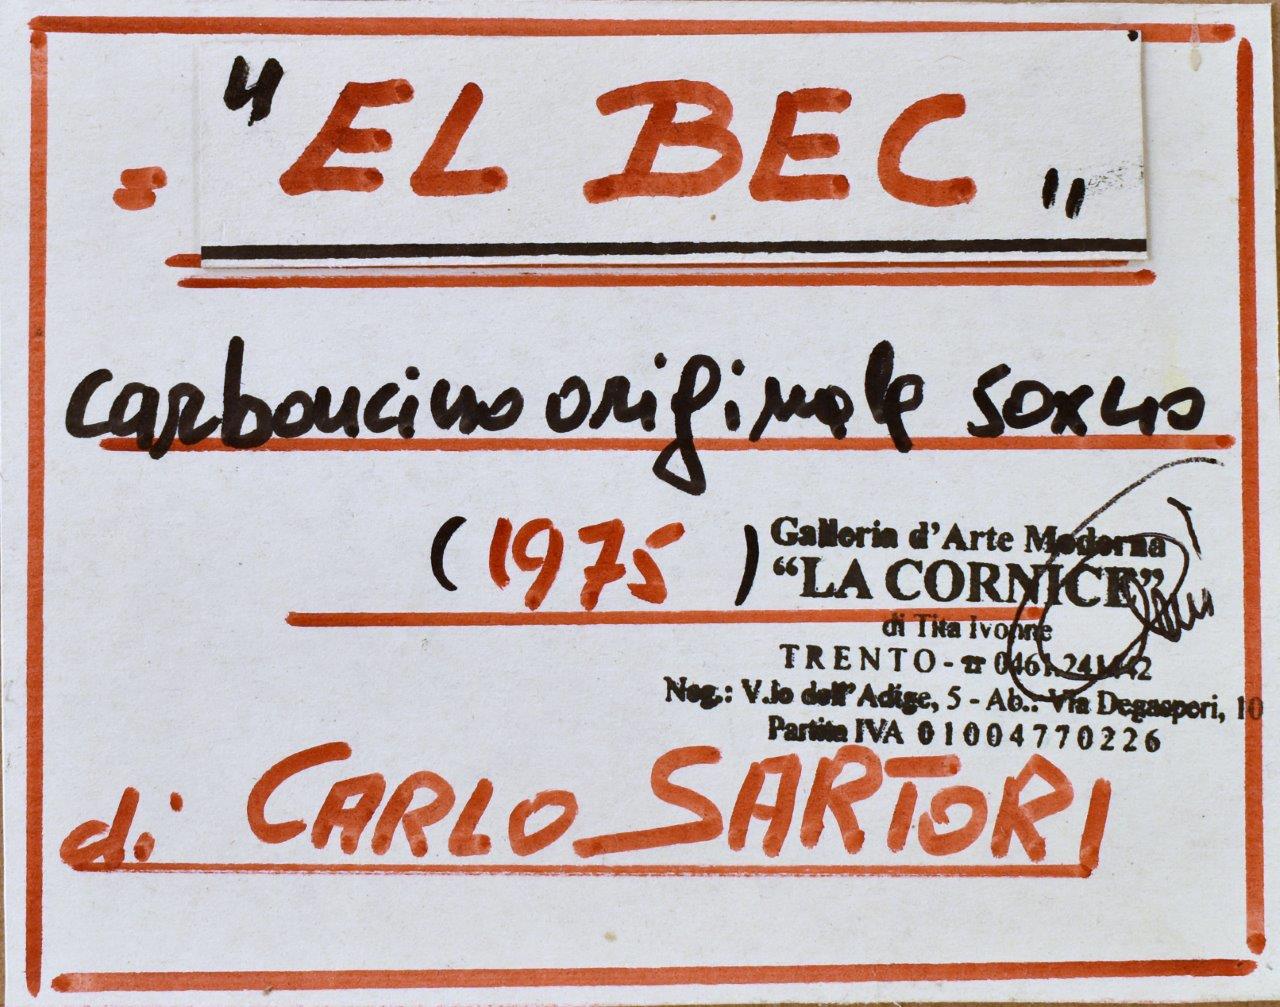 "EL BEC"
carboncino originale 50x40
(1975)
Galleria d'Arte Moderna
"LA CORNICE"
di Tita Ivonne
TRENTO - ☎ 0461.241442
Neg.: V.lo dell'Adige, 5 - Ab.: Via Degasperi, 10
Partita IVA 01004770226
di CARLO SARTORI